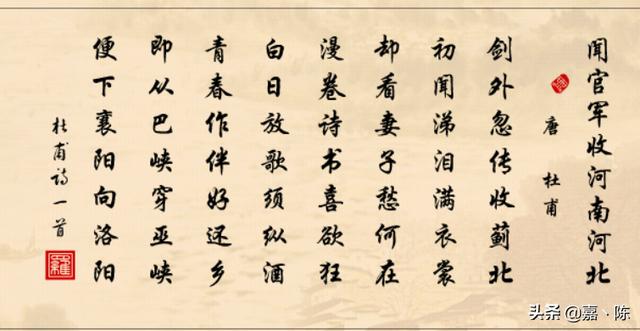 闻官军收河南河北
唐 杜甫
剑外忽传收蓟北
初闻涕泪满衣裳
却看妻子愁何在
漫卷诗书喜欲狂
白日放歌须纵酒
青春作伴好还乡
即从巴峡穿巫峡
便下襄阳向洛阳
杜甫诗一首
头条 @嘉丶陈